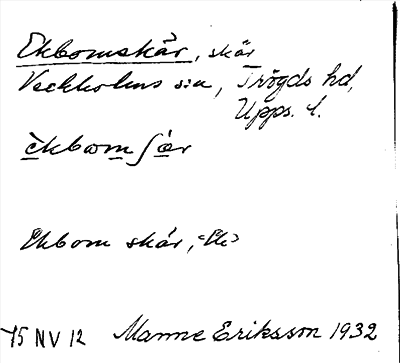 Ekbomskär, skär
Veckholms sn, Trögds hd,
Upps. l.
èkbωm ʃær
Ekbom skär, <Ek>
75 NV 12 Manne Eriksson 1932